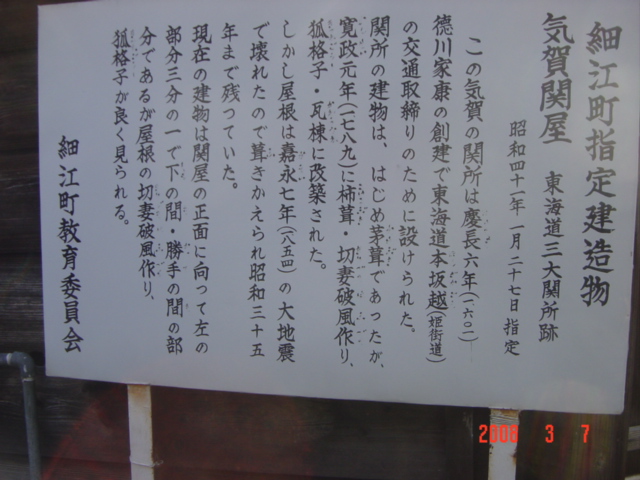 細江町指定建造物
気賀関屋 東海道三大関所跡
昭和四十一年一月二十七日指定
この気賀の関所は慶長六年(一六〇一)
徳川家康の創建で東海道本坂越(姫街道)
の交通取締りのために設けられた。
関所の建物は、はじめ茅葺であったが、
寛政元年(一七八九)に柿葺・切妻破風作り、
狐格子・瓦棟に改築された。
しかし屋根は嘉永七年(一八五四)の大地震
で壊れたので葺きかえられ昭和三十五
年まで残っていた。
現在の建物は関屋の正面に向って左の
部分三分の一で下の間・勝手の間の部
分であるが屋根の切妻破風作り、
狐格子が良く見られる。
細江町教育委員会
2008 3 7